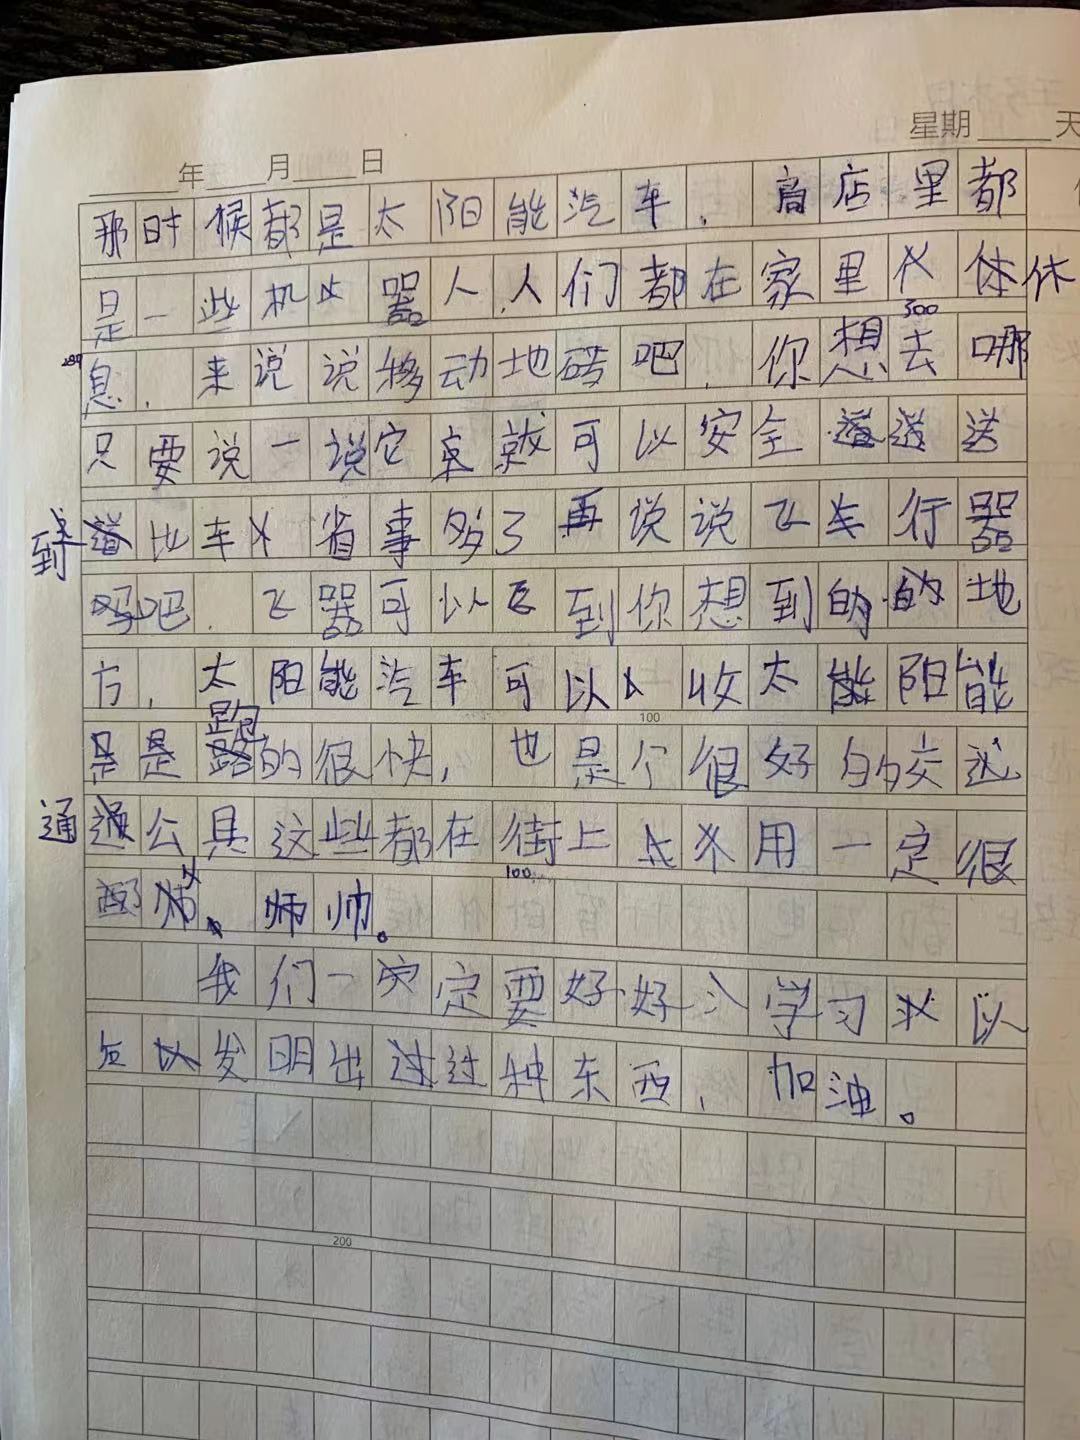 星期____天
____年____月____日
那时候都是太阳能汽车，商店里都
是一些机器人，人们都在家里休
300
息，来说说移动地砖吧，你想去哪
只要说一说它就可以安全送
到比车省事多了再说说飞行器
吧，飞器可以飞到你想到的地
方，太阳能汽车可以收太阳能
100
是跑的很快，也是个很好的交
通公具这些都在街上用一定很
100
帅。
我们一定要好好学习以
发明出过种东西，加油。
200